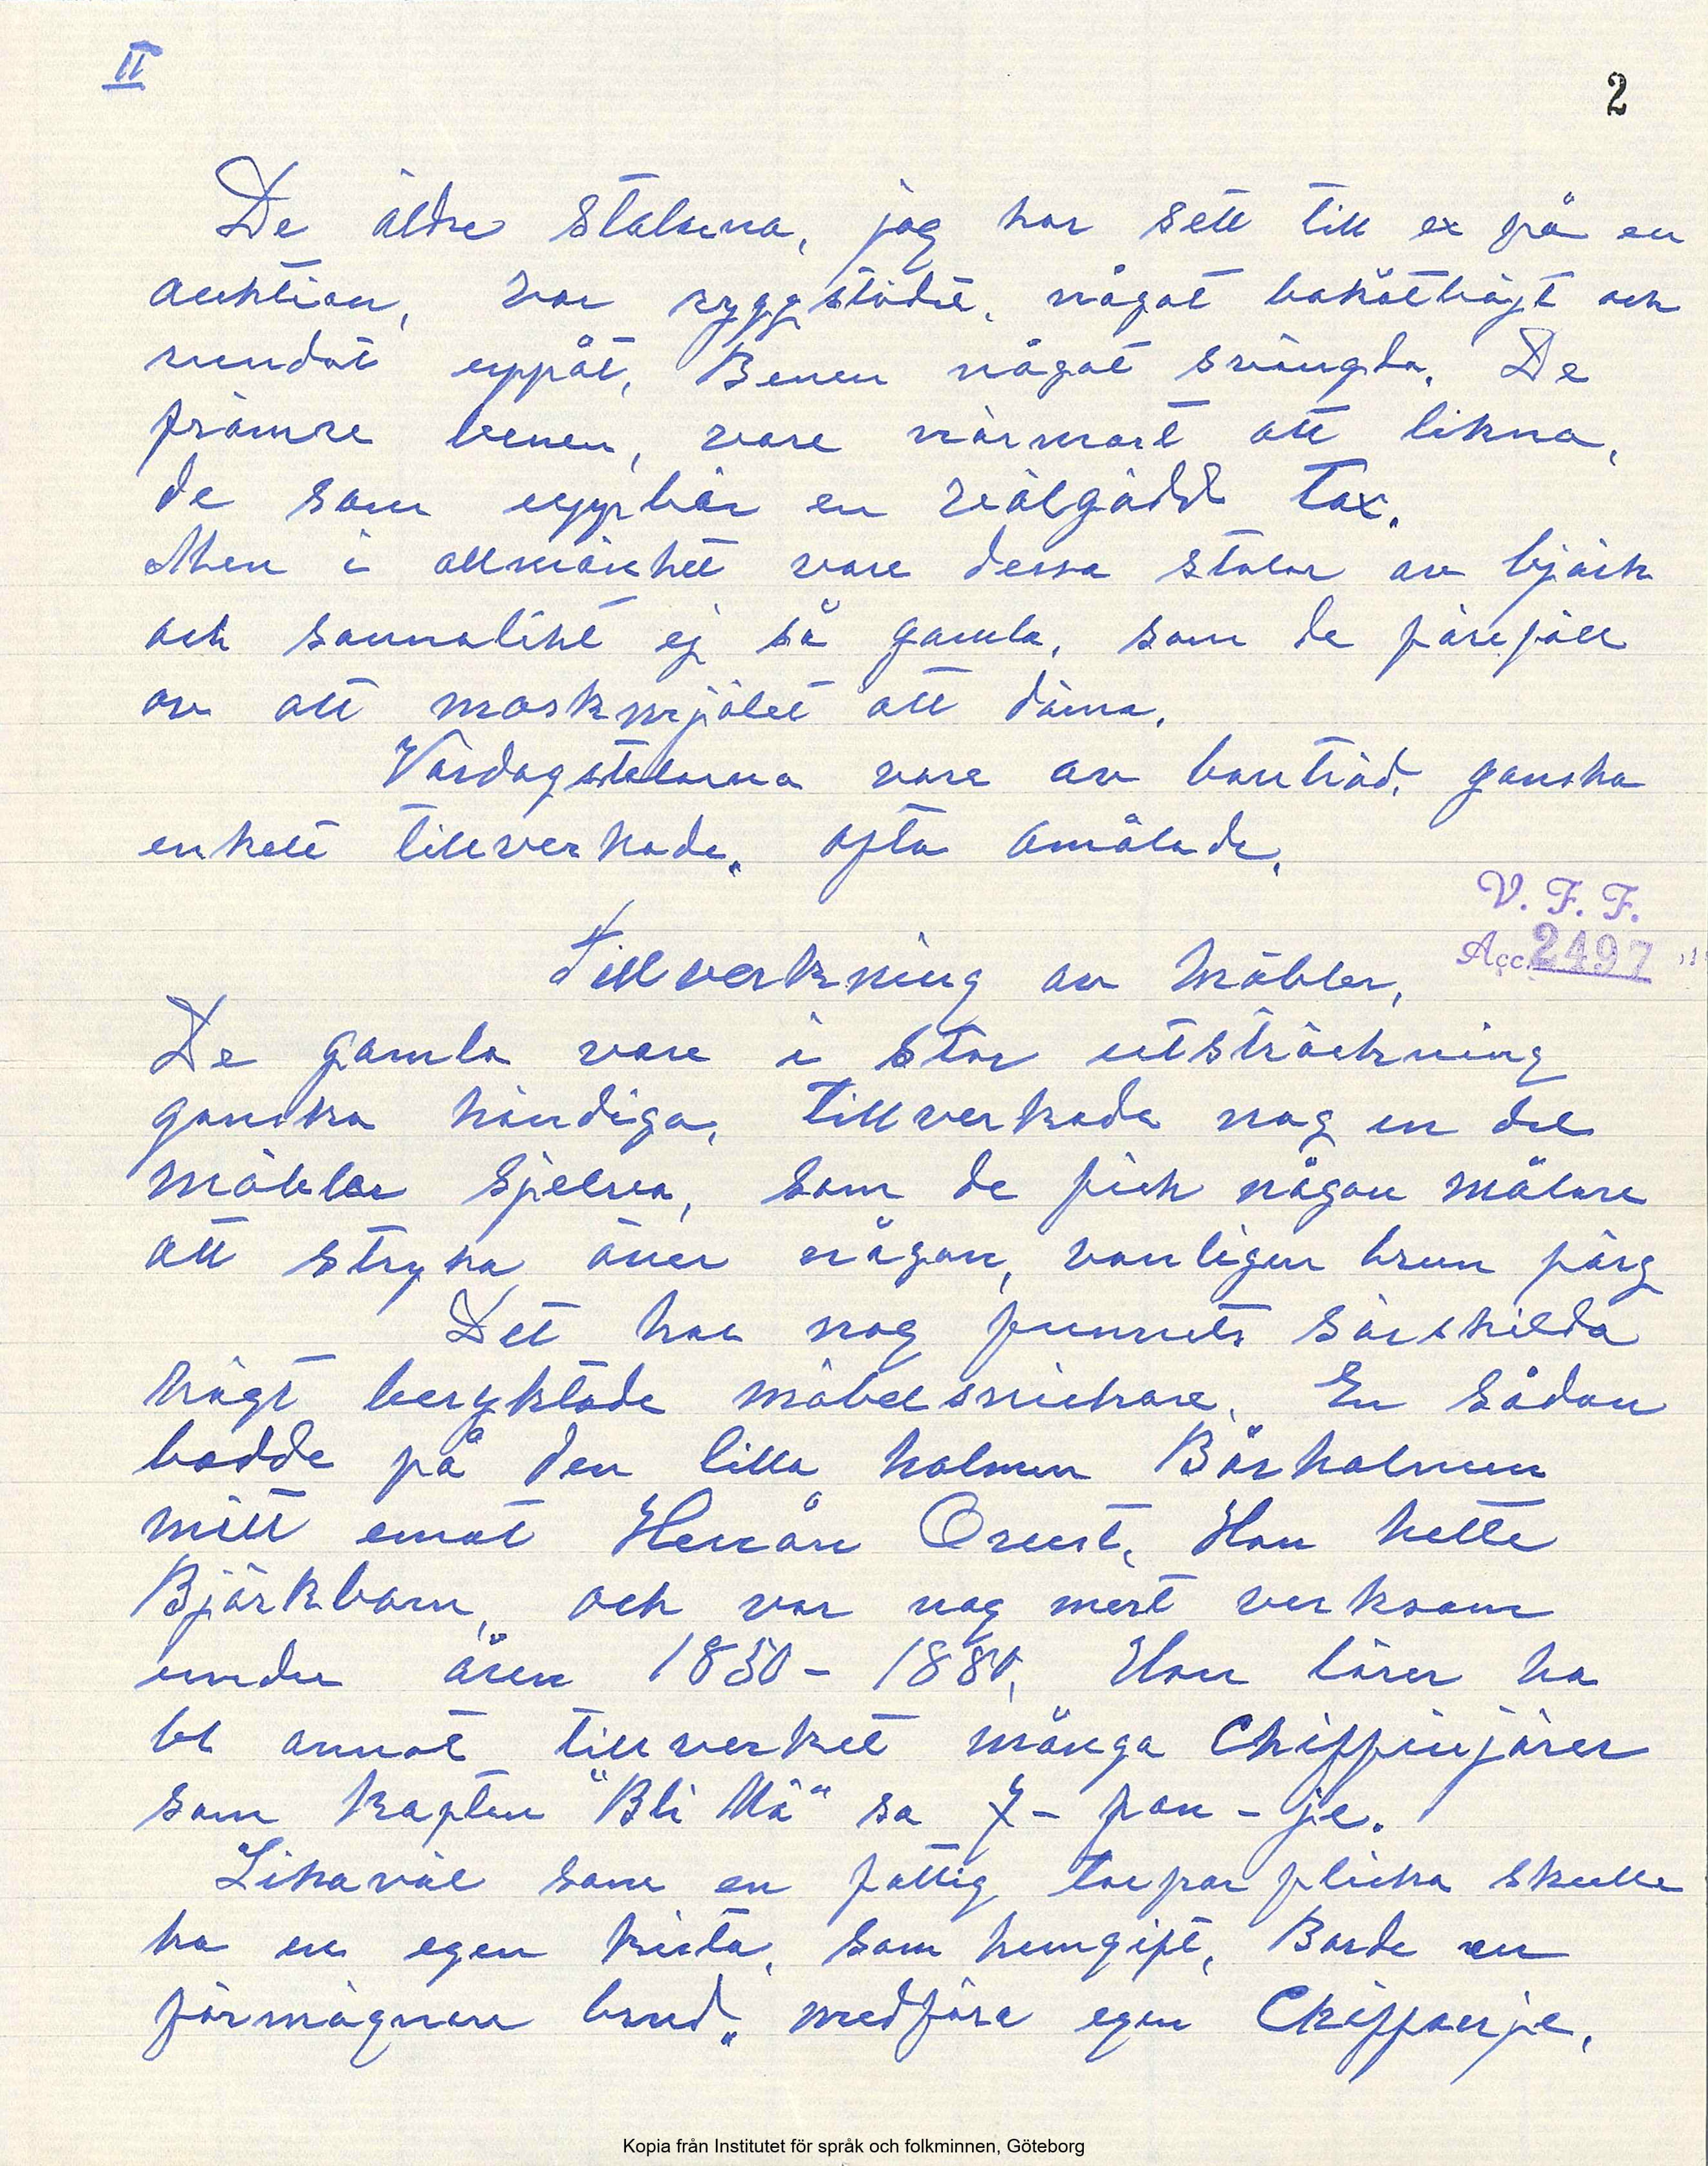 II
2
De äldre stolarna, jag har sett till ex på en
auktion, var ryggstödet, något bakåtböjt och
rundat uppåt, Benen något svängda. De
främre benen, vore närmast att likna,
de som uppbär en välgödd tax.
Men i allmänhet vore dessa stolar av björk
och sannolikt ej så gamla, som de föreföll
av att maskmjölet att döma.
Vardagstolarna vore av barrträd, ganska
enkelt tillverkade, ofta omålade.
V. F. F.
Acc. 2497
Tillverkning av möbler,
De gamla vore i stor utsträckning
ganska händiga, tillverkade nog en del
möbler sjelva, som de fick någon målare
att stryka över någon, vanligen brun färg
Det har nog funnits särskilda
högt beryktade möbelsnickare. En sådan
bodde på den lilla holmen Börholmen
mitt emot Henån Orust, Han hette
Björkbom, och var nog mest verksam
under åren 1850- 1880, Han lärer ha
bl annat tillverket många Chiffinjörer
som kapten "Bli Må" sa 7- fon - je.
Likaväl som en fattig torparflicka skulle
ha en egen kista, som hemgift, Borde en
förmögnare brud, medföra egen Chiffoerje,
Kopia från Institutet för språk och folkminnen, Göteborg